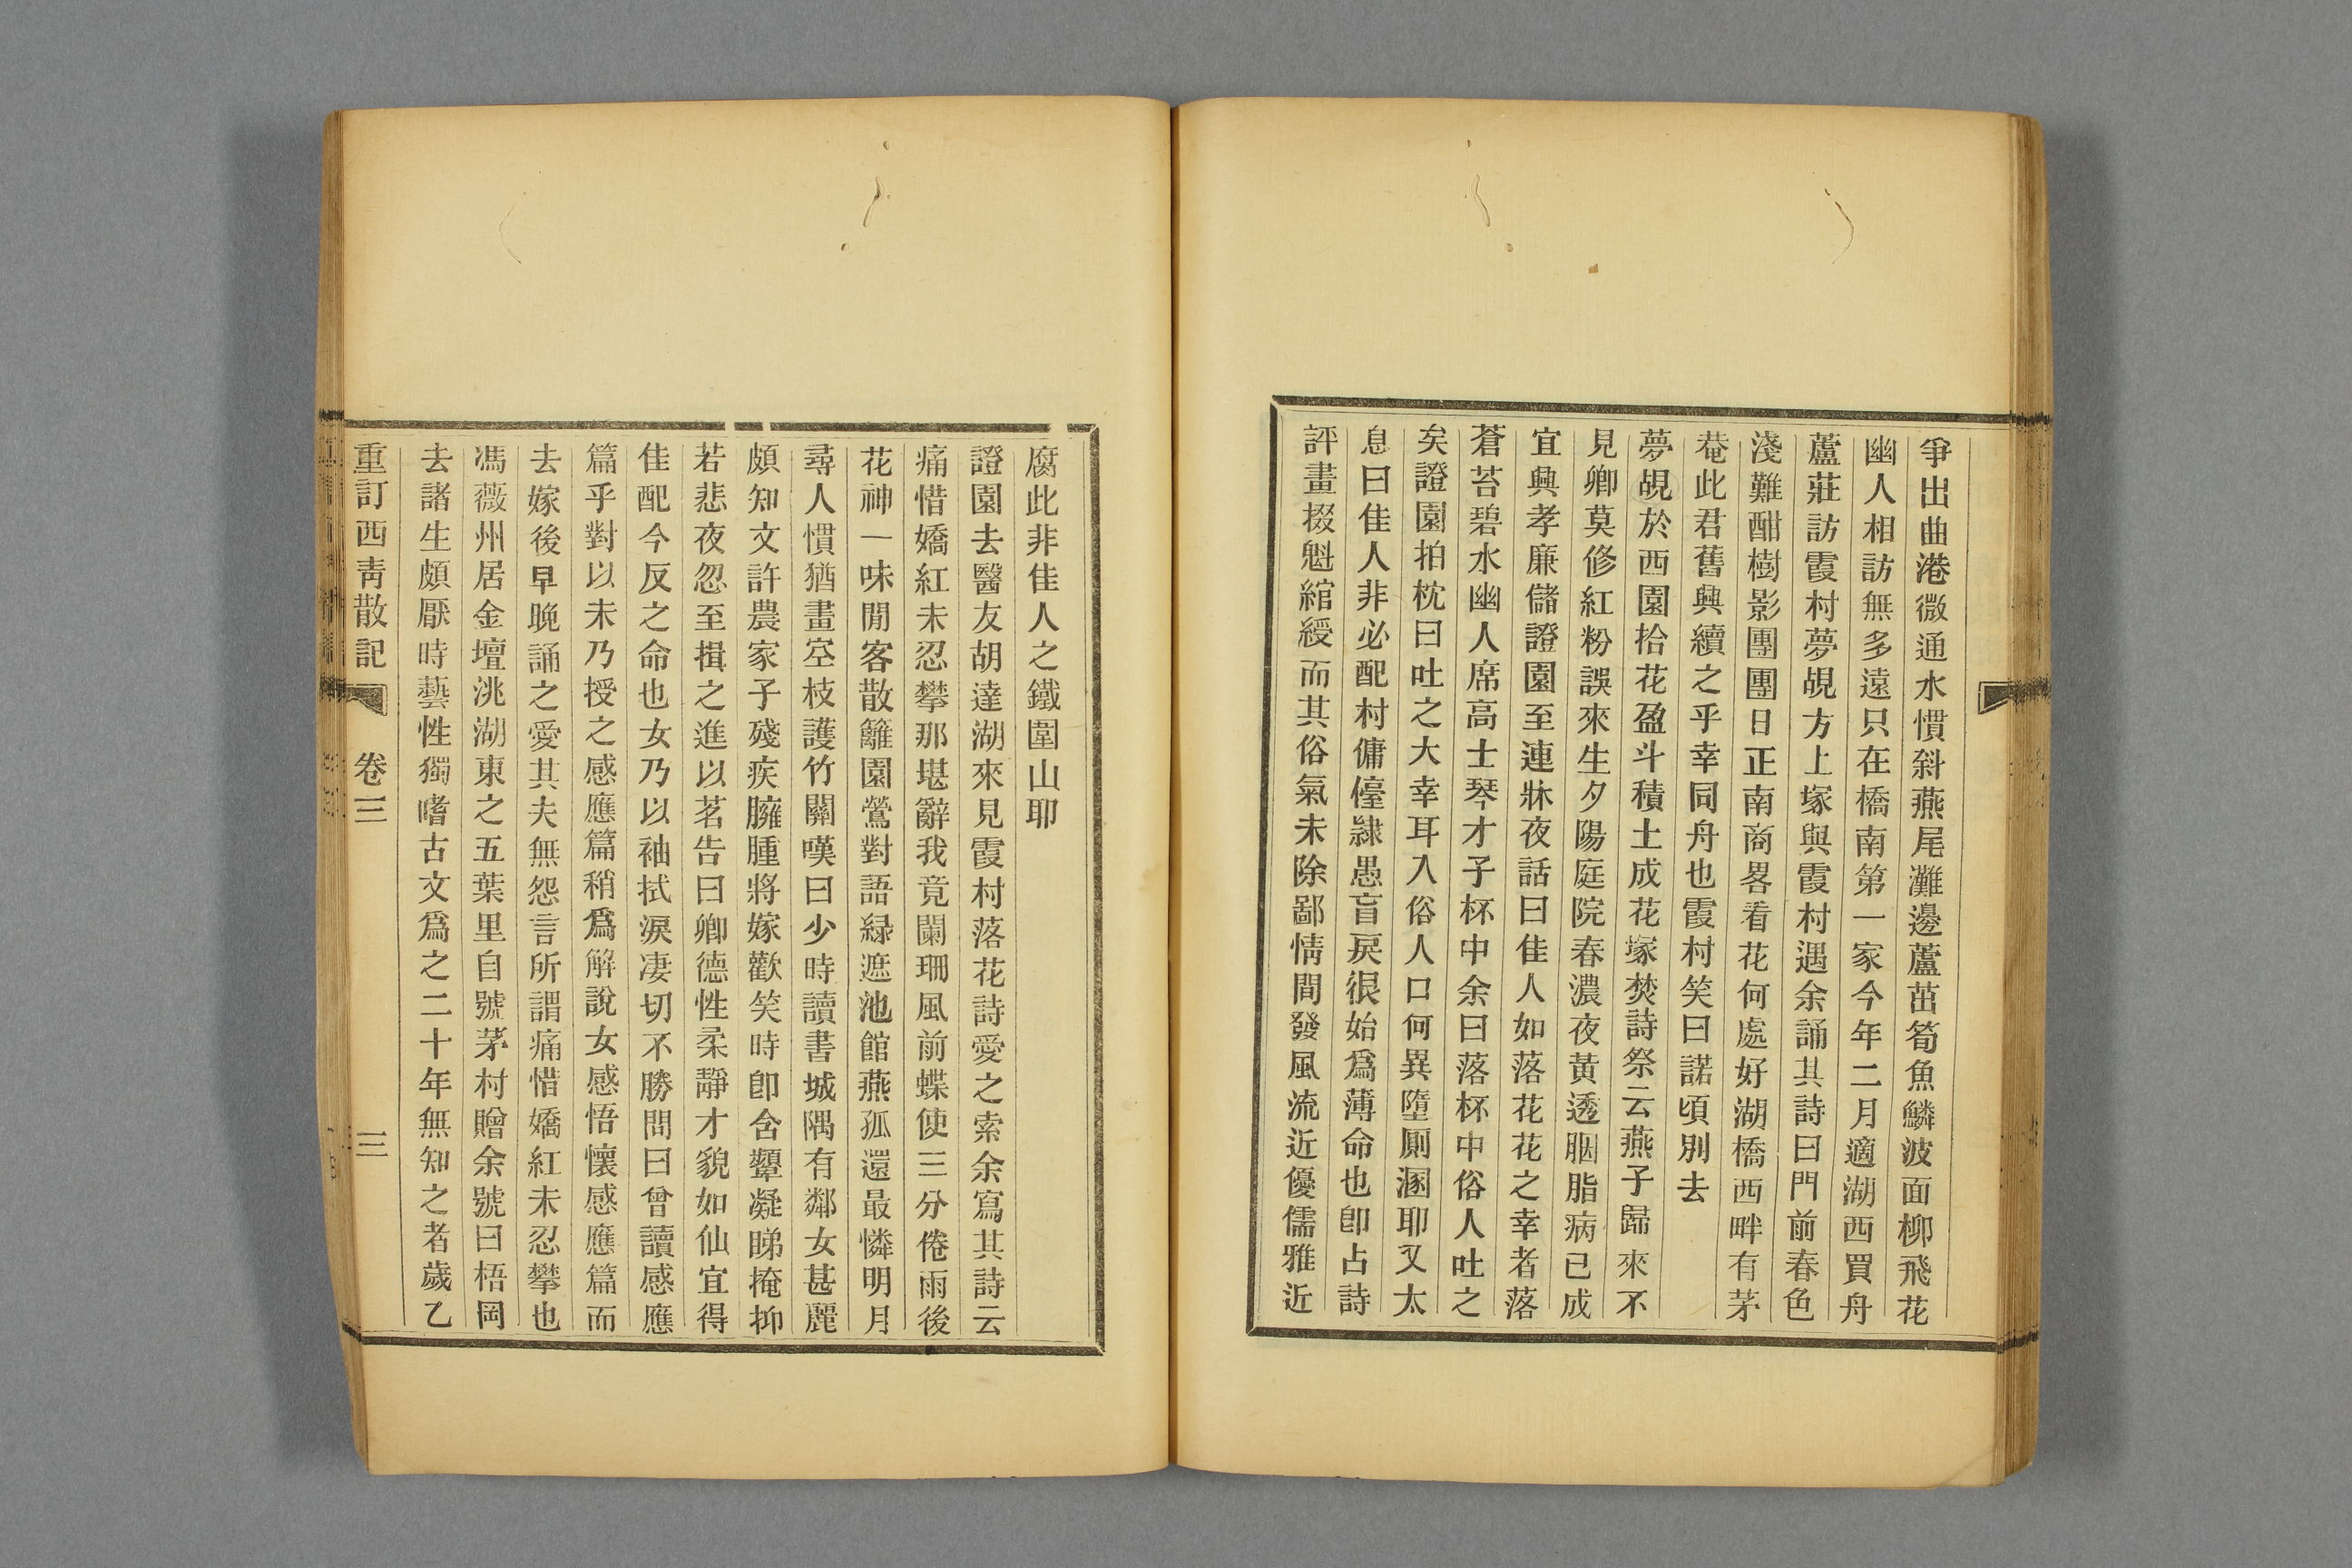 爭出曲港微通水慣斜燕尾灘邊蘆茁筍魚鱗波面柳飛花
幽人相訪無多遠只在橋南第一家今年二月適湖西買舟
蘆莊訪霞村夢覘方上塚與霞村遇余誦其詩曰門前春色
淺難酣樹影團團日正南商畧看花何處好湖橋西畔有茅
菴此君舊興續之乎幸同舟也霞村笑曰諾頃別去
夢覘於西園拾花盈斗積土成花塚焚詩祭云燕子歸來不
見卿莫修紅粉誤來生夕陽庭院春濃夜黃透胭脂病已成
宜興孝廉儲證園至連牀夜話曰佳人如落花花之幸者落
蒼苔碧水幽人席高士琴才子杯中余曰落杯中俗人吐之
矣證園拍枕曰吐之大幸耳入俗人口何異墮厠溷耶又太
息曰佳人非必配村傭儓隷愚盲戾很始爲薄命也卽占詩
評畫掇魁綰綬而其俗氣未除鄙情間發風流近優儒雅近
腐此非佳人之鐵圍山耶
證園去醫友胡達湖來見霞村落花詩愛之索余寫其詩云
痛惜嬌紅未忍攀那堪辭我竟闌珊風前蝶使三分倦雨後
花神一味閒客散籬園鶯對語緑遮池館燕孤還最憐明月
尋人慣猶畫空枝護竹關嘆曰少時讀書城隅有鄰女甚麗
頗知文許農家子殘疾臃腫將嫁歡笑時卽含顰凝睇掩抑
若悲夜忽至揖之進以茗告曰卿德性柔靜才貌如仙宜得
佳配今反之命也女乃以袖拭淚凄切不勝問曰曾讀感應
篇乎對以未乃授之感應篇稍爲解說女感悟懷感應篇而
去嫁後早晚誦之愛其夫無怨言所謂痛惜嬌紅未忍攀也
馮薇州居金壇洮湖東之五葉里自號茅村贈余號曰梧岡
去諸生頗厭時藝性獨嗜古文爲之二十年無知之者歲乙
重訂西靑散記 卷三 三